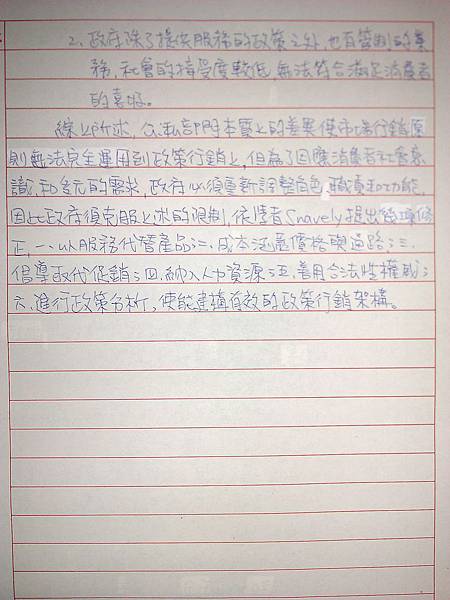 2、政府除了提供服務的政策之外，也有管制的業
務，社會的接受度較低，無法符合滿足消費者
的喜好。
綜上所求，公私部門本質上的差異使市場行銷原
則無法完全運用到政策行銷上，但為了因應消費者社會意
識，和多元的需求，政府必須重新調整角色、職責和功能，
因此政府須克服上求的限制，依學者Snavely提出幾項修
正，一、以服務代替產品；二、成本涵蓋價格與通路；三、
倡導取代促銷；四、納入人力資源；五、善用合法性權威；
六、進行政策分析，使能建構有效的政策行銷架構。